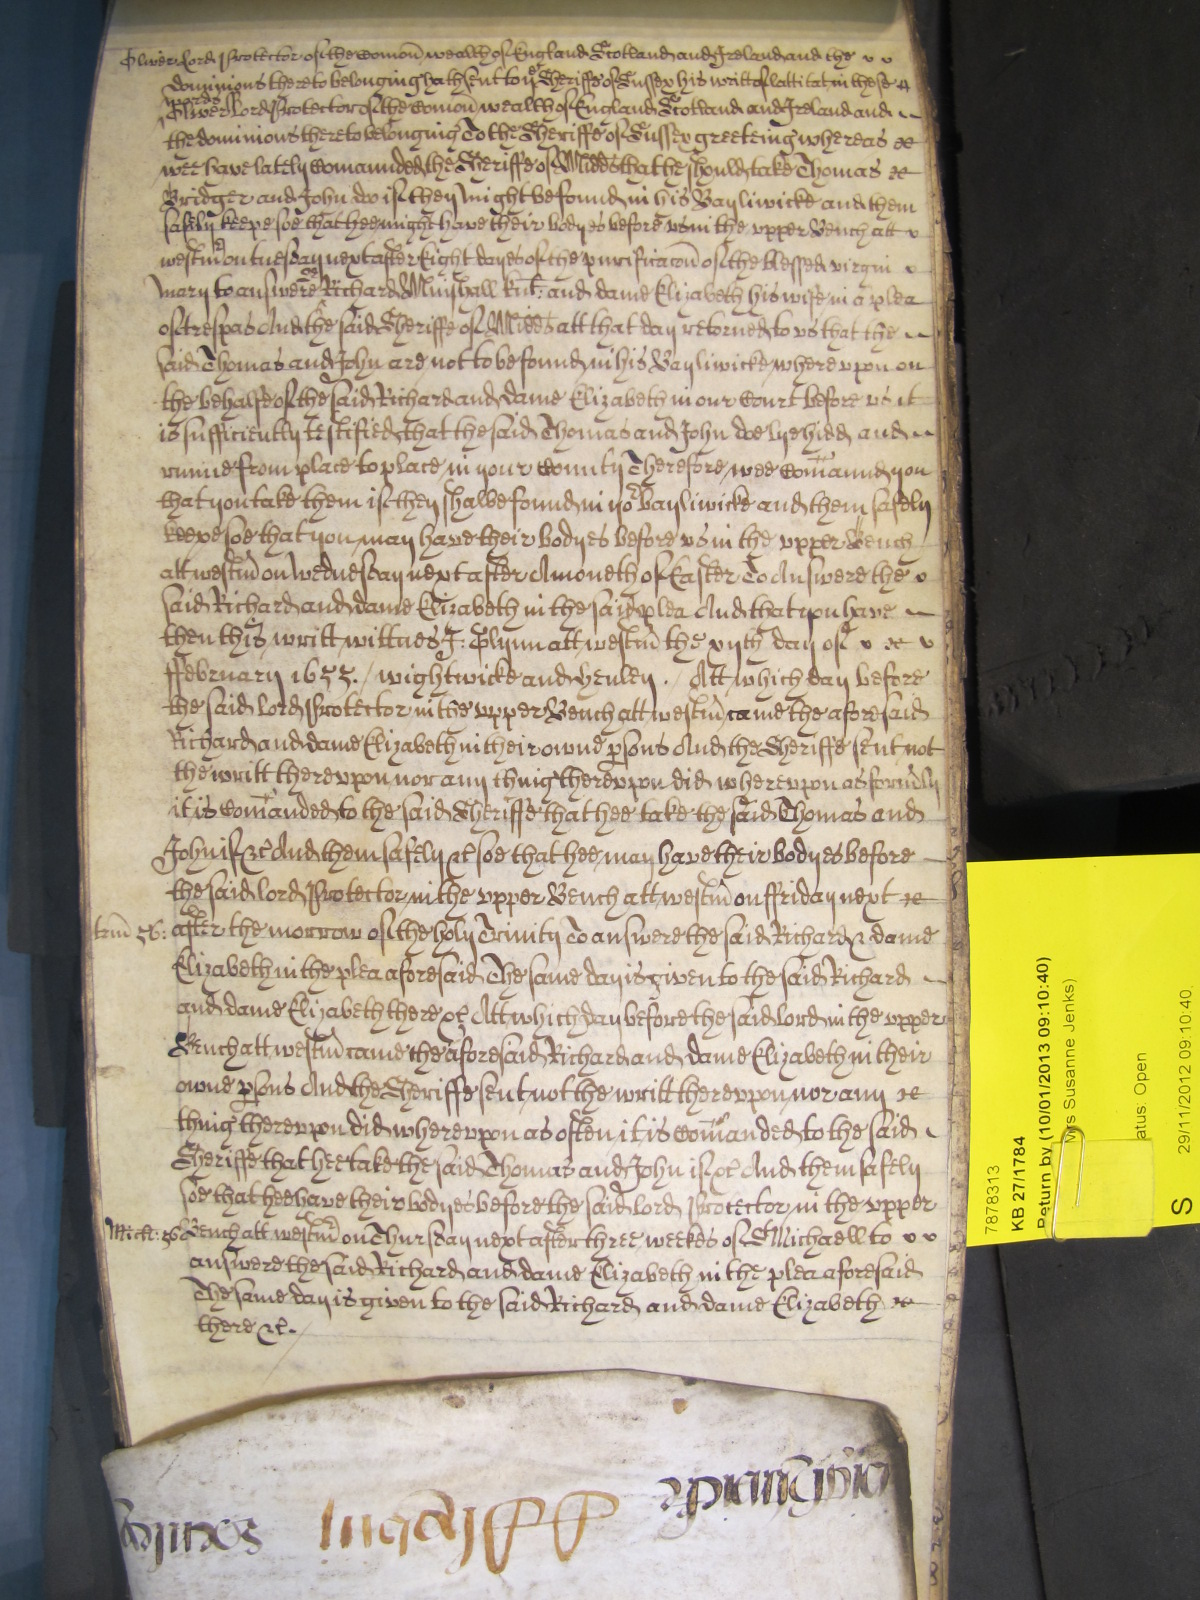 Oliver Lord Protector of the Comon wealth of England Scotland and Ireland and the
dominions thereto belonging hath sent to ye Sheriffe of Sussex his writt of lattitat in these
words
Oliver Lord Protector of the Comon wealth of England Scotland and Ireland and
the dominions thereto belonging To the Sheriffe of Sussex greeteing whereas
wee have lately Comannded the Sheriffe of Midds that he should take Thomas
Bridger and John doo if they might be found in his Bayliwicke and them
safely keepe soe that hee might have their bodyes before us in the upper Bench att
westmr on tuesday next after Eight dayes of the purificacon of the blessed virgin
Mary to answere Richard Minshall knt: and dame Elizabeth his wife in a plea
of trespas And the said Sheriffe of Midds att that day retorned to us that the
said Thomas and John are not to be found in his Bayliwicke whereupon on
the behalfe of the said Richard and dame Elizabeth in our Court before us it
is sufficiently testified that the said Thomas and John doe lye hidd and
runne from place to place in your County Therefore wee Comannd you
that you take them if they shalbe found in yor bayliwicke and them safely
keepe soe that you may have their bodyes before us in the upper Bench
att westmr on Wednesday next after A moneth of Easter To Answere the
said Richard and dame Elizabeth in the said plea And that you have
then this writt wittnes J: Glynn att westmr the xijth day of
ffebruary 1655. / wightwicke and henley . / Att which day before
the said lord Protector in the upper Bench att westmr came the aforesaid
Richard and dame Elizabeth in their owne psons And the Sheriffe sent not
the writt thereupon nor any thing thereupon did whereupon as formly
it is Comanded to the said Sheriffe that hee take the said Thomas and
John if &c And them safely &c soe that hee may have their bodyes before
the said lord Protector in the upper Bench att westmr on ffriday next
trin 56: after the morrow of the holy Trinity To answere the said Richard & dame
Elizabeth in the plea aforesaid The same day is given to the said Richard
and dame Elizabeth there &c Att which day before the said lord in the upper
Bench att westmr came the aforesaid Richard and dame Elizabeth in their
owne psons And the Sheriffe sent not the writt thereupon nor any
thing thereupon did whereupon as often it is Comanded to the said
Sheriffe that hee take the said Thomas and John if &c And them safely
soe that hee have their bodyes before the said lord Protector in the upper
Mich: 56 Bench att westmr on Thursday next after three weekes of St Michaell to
answere the said Richard and dame Elizabeth in the plea aforesaid
The same day is given to the said Richard and dame Elizabeth
there &c.
7878313
KB 27/1784
Return by (10/01/2013 09:10:40)
Mrs Susanne Jenks)
atus: Open
S 29/11/2012 09:10:40